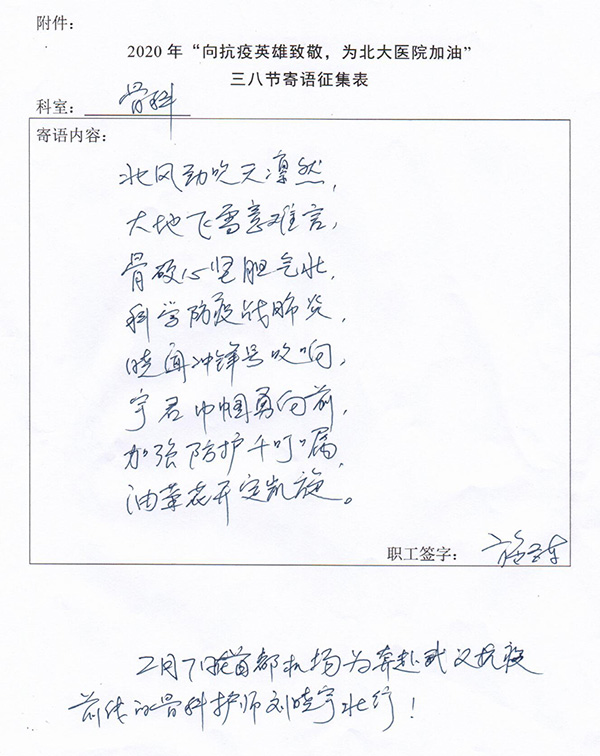 附件：
2020 年“向抗疫英雄致敬，为北大医院加油”
三八节寄语征集表
科室： 骨科
寄语内容：
北风劲吹天凛然，
大地飞雪意难言，
骨硬心坚胆气壮，
科学防疫战肺炎，
晓闻冲锋号吹响，
宇君巾帼勇向前，
加强防护千叮嘱，
油菜花开定凯旋。
职工签字：
2月7日首都机场为奔赴武汉抗疫
前线的骨科护师刘晓宇壮行！